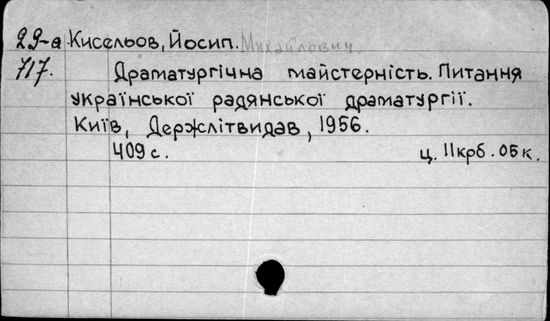 29-а Кисельов, Йосип. Михайлович.
717. Драматургічна майстерність. Питання
української радянської драматургії.
Київ, Держлітвидав, 1956.
409 с. ц. 11крб. 05 к.